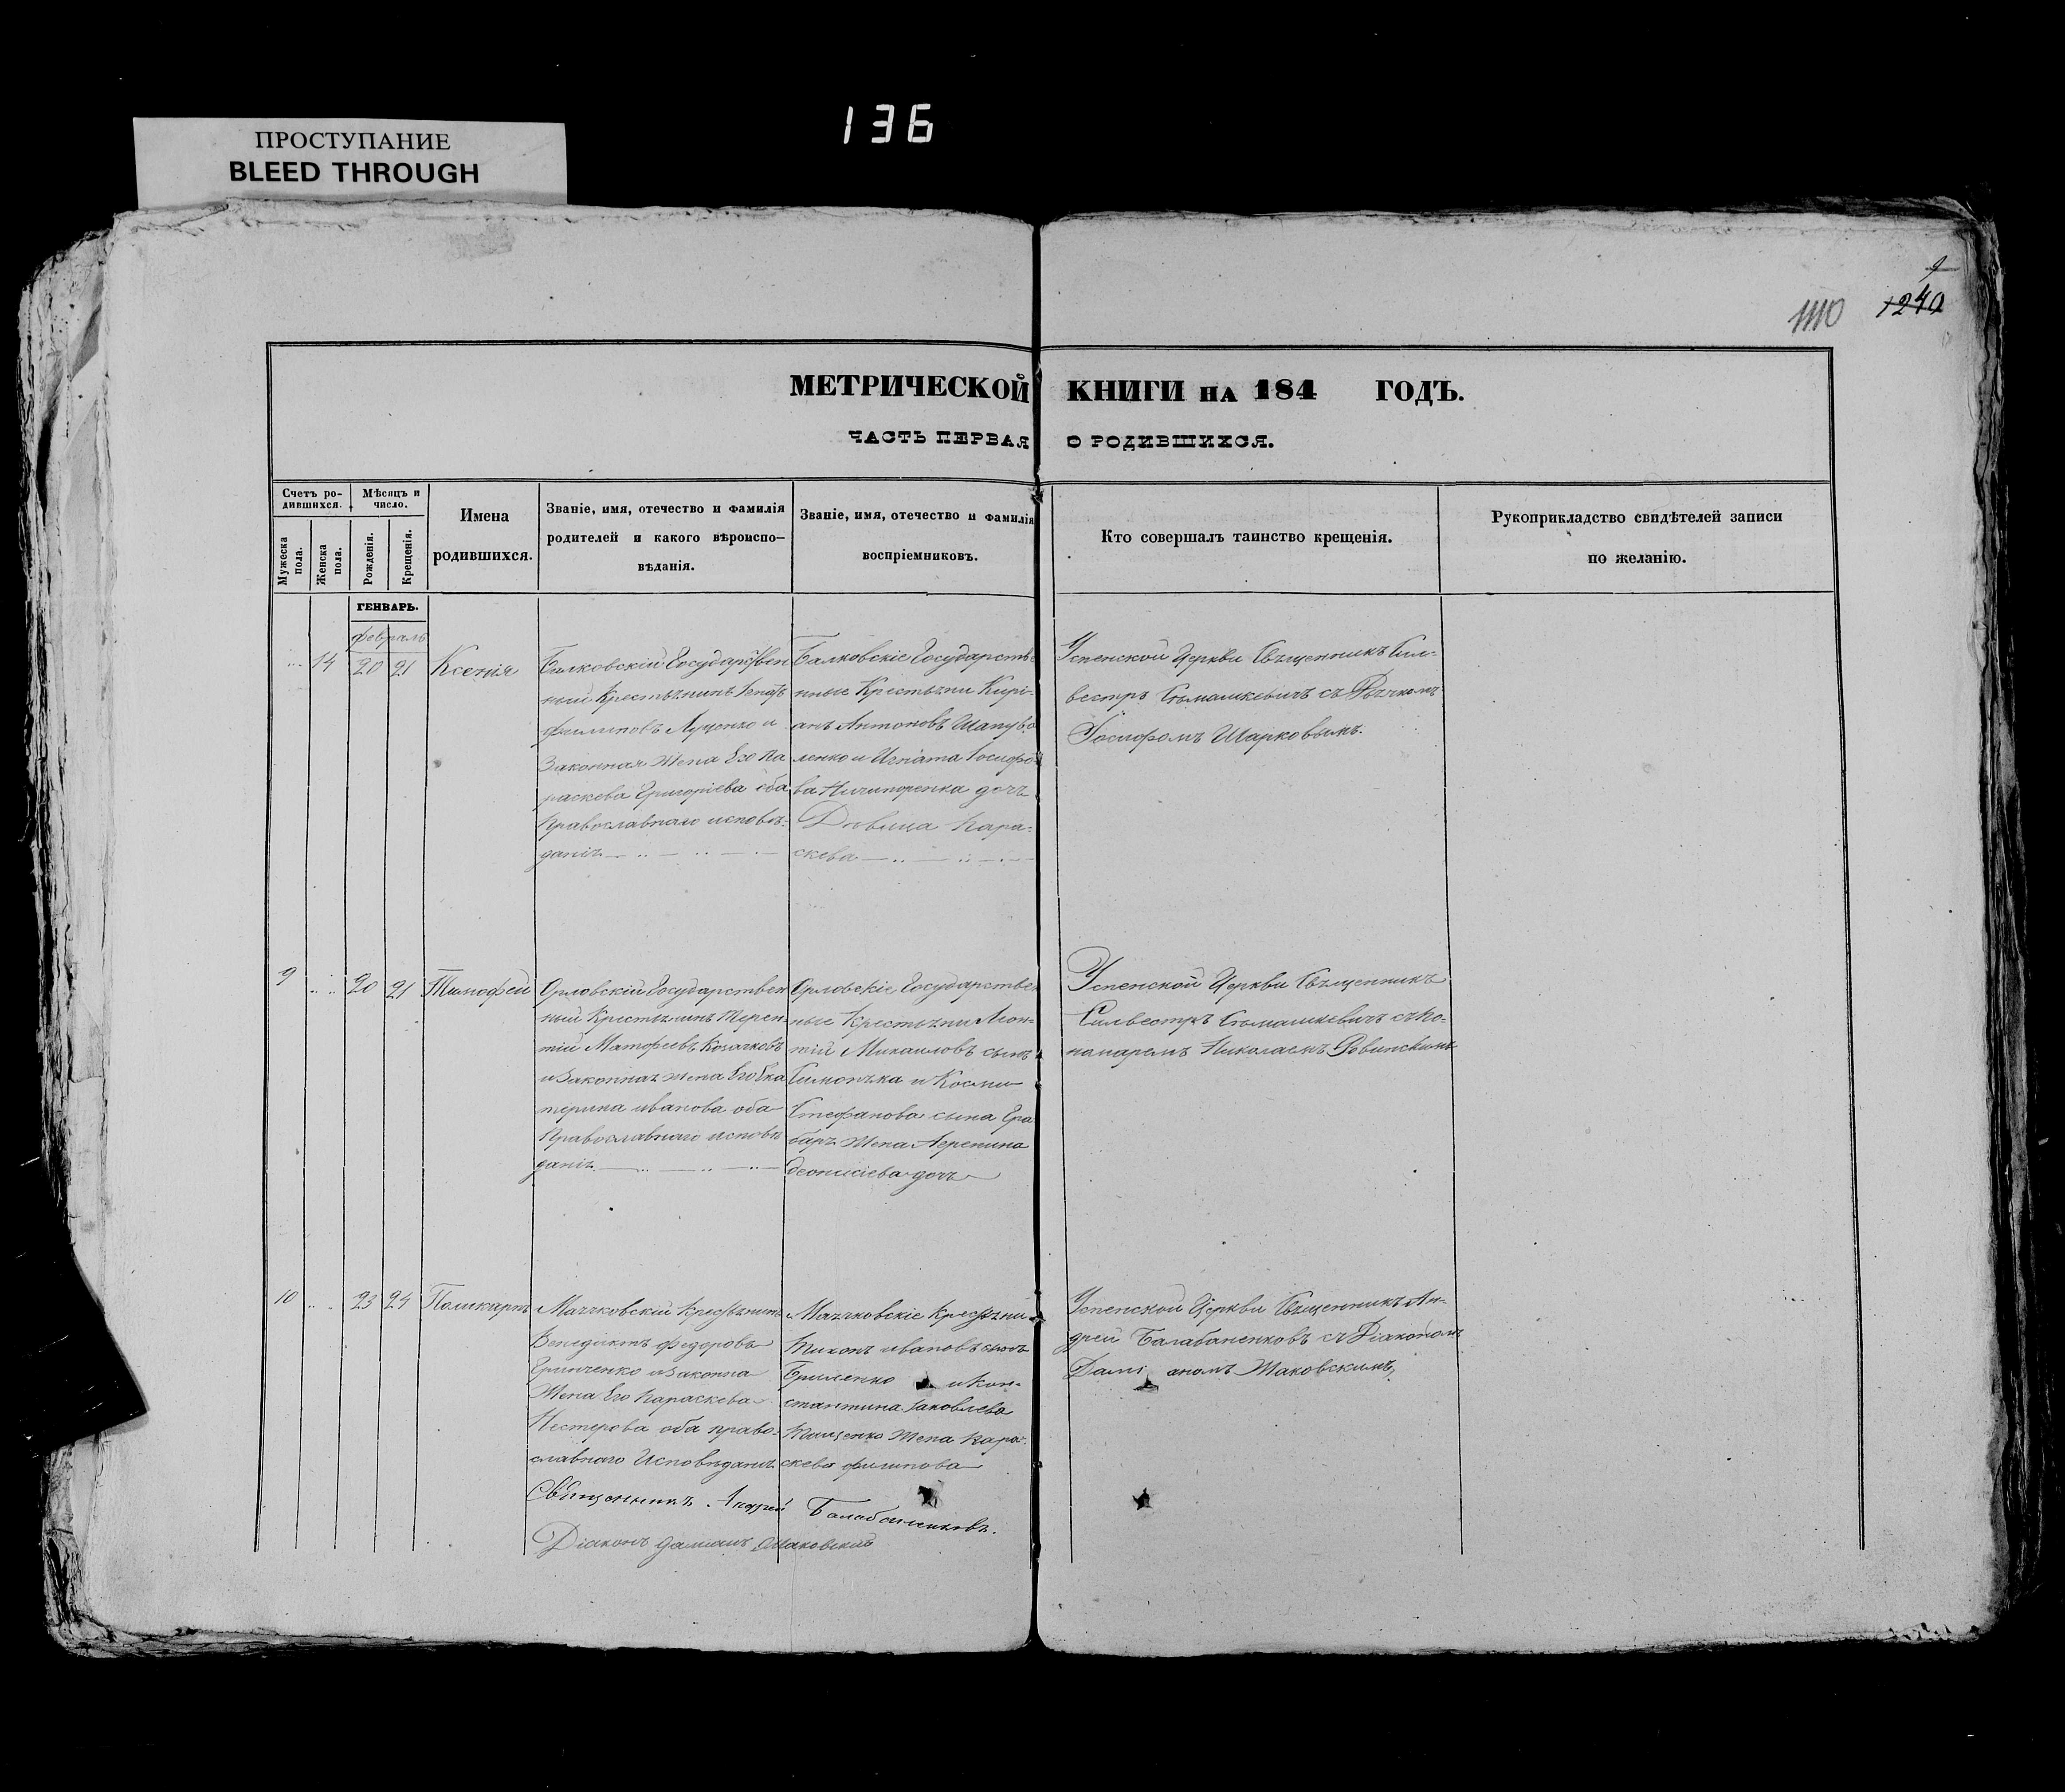 136
ПРОСТУПАНИЕ
BLEED THROUGH
9
1110 1240
МЕТРИЧЕСКОЙ КНИГИ НА 184 ГОДЪ.
ЧАСТЬ ПЕРВАЯ О РОДИВШИХСЯ.
Счетъ ро-
дившихся.
Мѣсяцъ и
число.
Мужеска
пола.
Женска
пола.
Рожденія.
Крещенія.
Имена
родившихся.
Званіе, имя, отечество и фамилія
родителей и какого вѣроиспо-
вѣданія.
Званіе, имя, отечество и фамилія
воспріемниковъ.
Кто совершалъ таинство крещенія.
Рукоприкладство свидѣтелей записи
по желанію.
ГЕНВАРЬ.
февраль
14 20 21 Ксенія
Балковскій Государствен
ный Крестьянинъ
филиповъ Луценко и
Законная Жена Его Па
раскева Григоріева оба
Православнаго исповѣ-
данія
Балковскіе Государстве
нные Крестьяни Кирі-
анъ Антоновъ Шапува
ленко и Игната Іосифо
ва Ничипоренка дочь
Дѣвица Пара-
скева
Успенской Церкви Священникъ Сил-
вестръ Сѣмашкевичъ съ Дьячкомъ
Іосифомъ Шарковымъ.
9 20 21 Тимофей
Орловскій Государствен
ный Крестьянинъ Терен-
тій Матфеевъ Козачковъ
и Законная жена Его Ека
терина иванова оба
Православнаго исповѣ
данія
Орловскіе Государствен
ные Крестьяни Леон-
тій Михаиловъ сынъ
и Косми
Стефанова сына Гра
баръ Жена Агрепина
деонисіева дочь
Успенской Церкви Священникъ
Силвестръ Сѣмашкевичъ съ По-
намаремъ Николаемъ Ровинскимъ
10 23 24 Поликарпъ
Маячковскій Крестьянинъ
Венедиктъ федоровъ
Гринченко и Законна
Жена Его Параскева
Нестерова оба право-
славнаго Исповѣданія
Маячковскіе Крестьяни
Тихонъ ивановъ сынъ
Бриленко и Кон-
стантина Іаковлева
Тищенко Жена Пара-
скева филипова
Успенской Церкви Священникъ Ан-
дрей Балабаненковъ съ Діакономъ
Даміаномъ Маковскимъ
Священникъ Андрей Балабаненковъ.
Діаконъ Даміанъ Маковскій